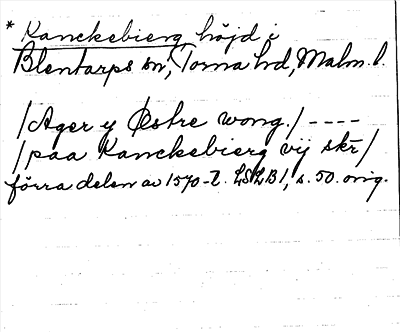 * Kanckebierg höjd i
Blentarps sn, Torna hd, Malm. l.
/Ager y Østre wong./ ----
/paa Kanckebierg vij skr/
förra delen av 1570-t. LSLB 1, s. 50. orig.